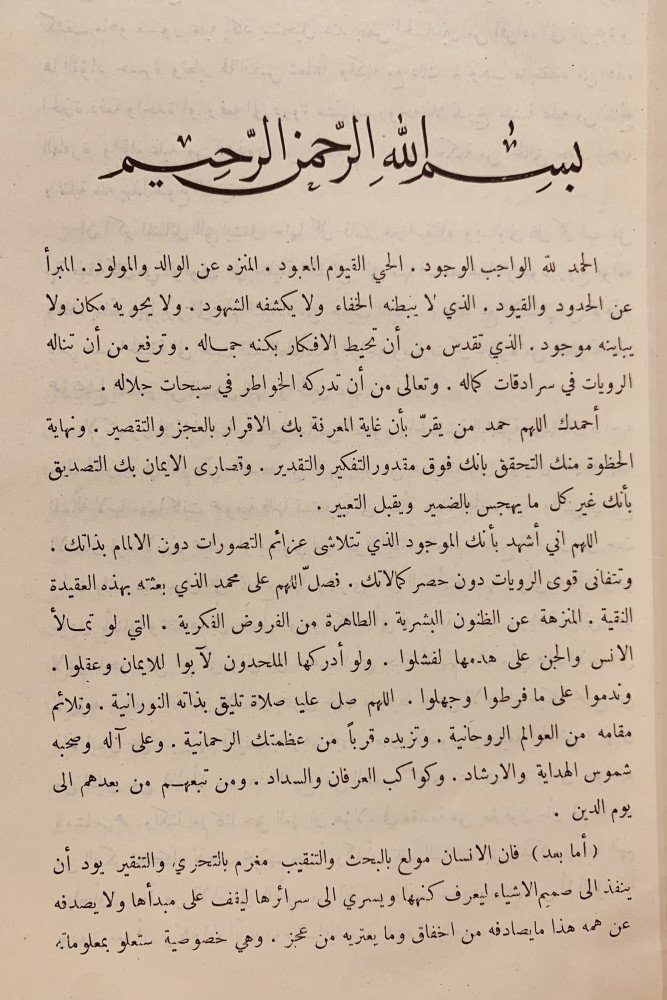 بسم الله الرحمن الرحيم
الحمد لله الواجب الوجود . الحي القيوم المعبود . المنزه عن الوالد والمولود . المبرأ
عن الحدود والقيود . الذي لا يبطنه الخفاء ولا يكشفه الشهود . ولا يحويه مكان ولا
يباينه موجود . الذي تقدس من أن تحيط الافكار بكنه جماله . وترفع من أن تناله
الرويات في سرادقات كماله . وتعالى من أن تدركه الخواطر في سبحات جلاله .
أحمدك اللهم حمد من يقرّ بأن غاية المعرفة بك الاقرار بالعجز والتقصير . ونهاية
الحظوة منك التحقق بانك فوق مقدور التفكير والتقدير . وقصارى الايمان بك التصديق
بأنك غير كل ما يهجس بالضمير ويقبل التعبير .
اللهم اني أشهد بأنك الموجود الذي تتلاشى عزائم التصورات دون الالمام بذاتك .
وتتفانى قوى الرويات دون حصر كمالاتك . فصلّ اللهم على محمد الذي بعثته بهذه العقيدة
النقية . المنزهة عن الظنون البشرية . الطاهرة من الفروض الفكرية . التي لو تمالأ
الانس والجن على هدمها لفشلوا . ولو أدركها الملحدون لآبوا للايمان وعقلوا .
وندموا على ما فرطوا وجهلوا . اللهم صل عليه صلاة تليق بذاته النورانية . وتلائم
مقامه من العوالم الروحانية . وتزيده قرباً من عظمتك الرحمانية . وعلى آله وصحبه
شموس الهداية والارشاد . وكواكب العرفان والسداد . ومن تبعهم من بعدهم الى
يوم الدين .
( أما بعد ) فان الانسان مولع بالبحث والتنقيب مغرم بالتحري والتنقير يود أن
ينفذ الى صميم الاشياء ليعرف كنهها ويسري الى سرائرها ليقف على مبدأها ولا يصدفه
عن همه هذا ما يصادفه من اخفاق وما يعتريه من عجز . وهي خصوصية ستعلو بمعلوماته